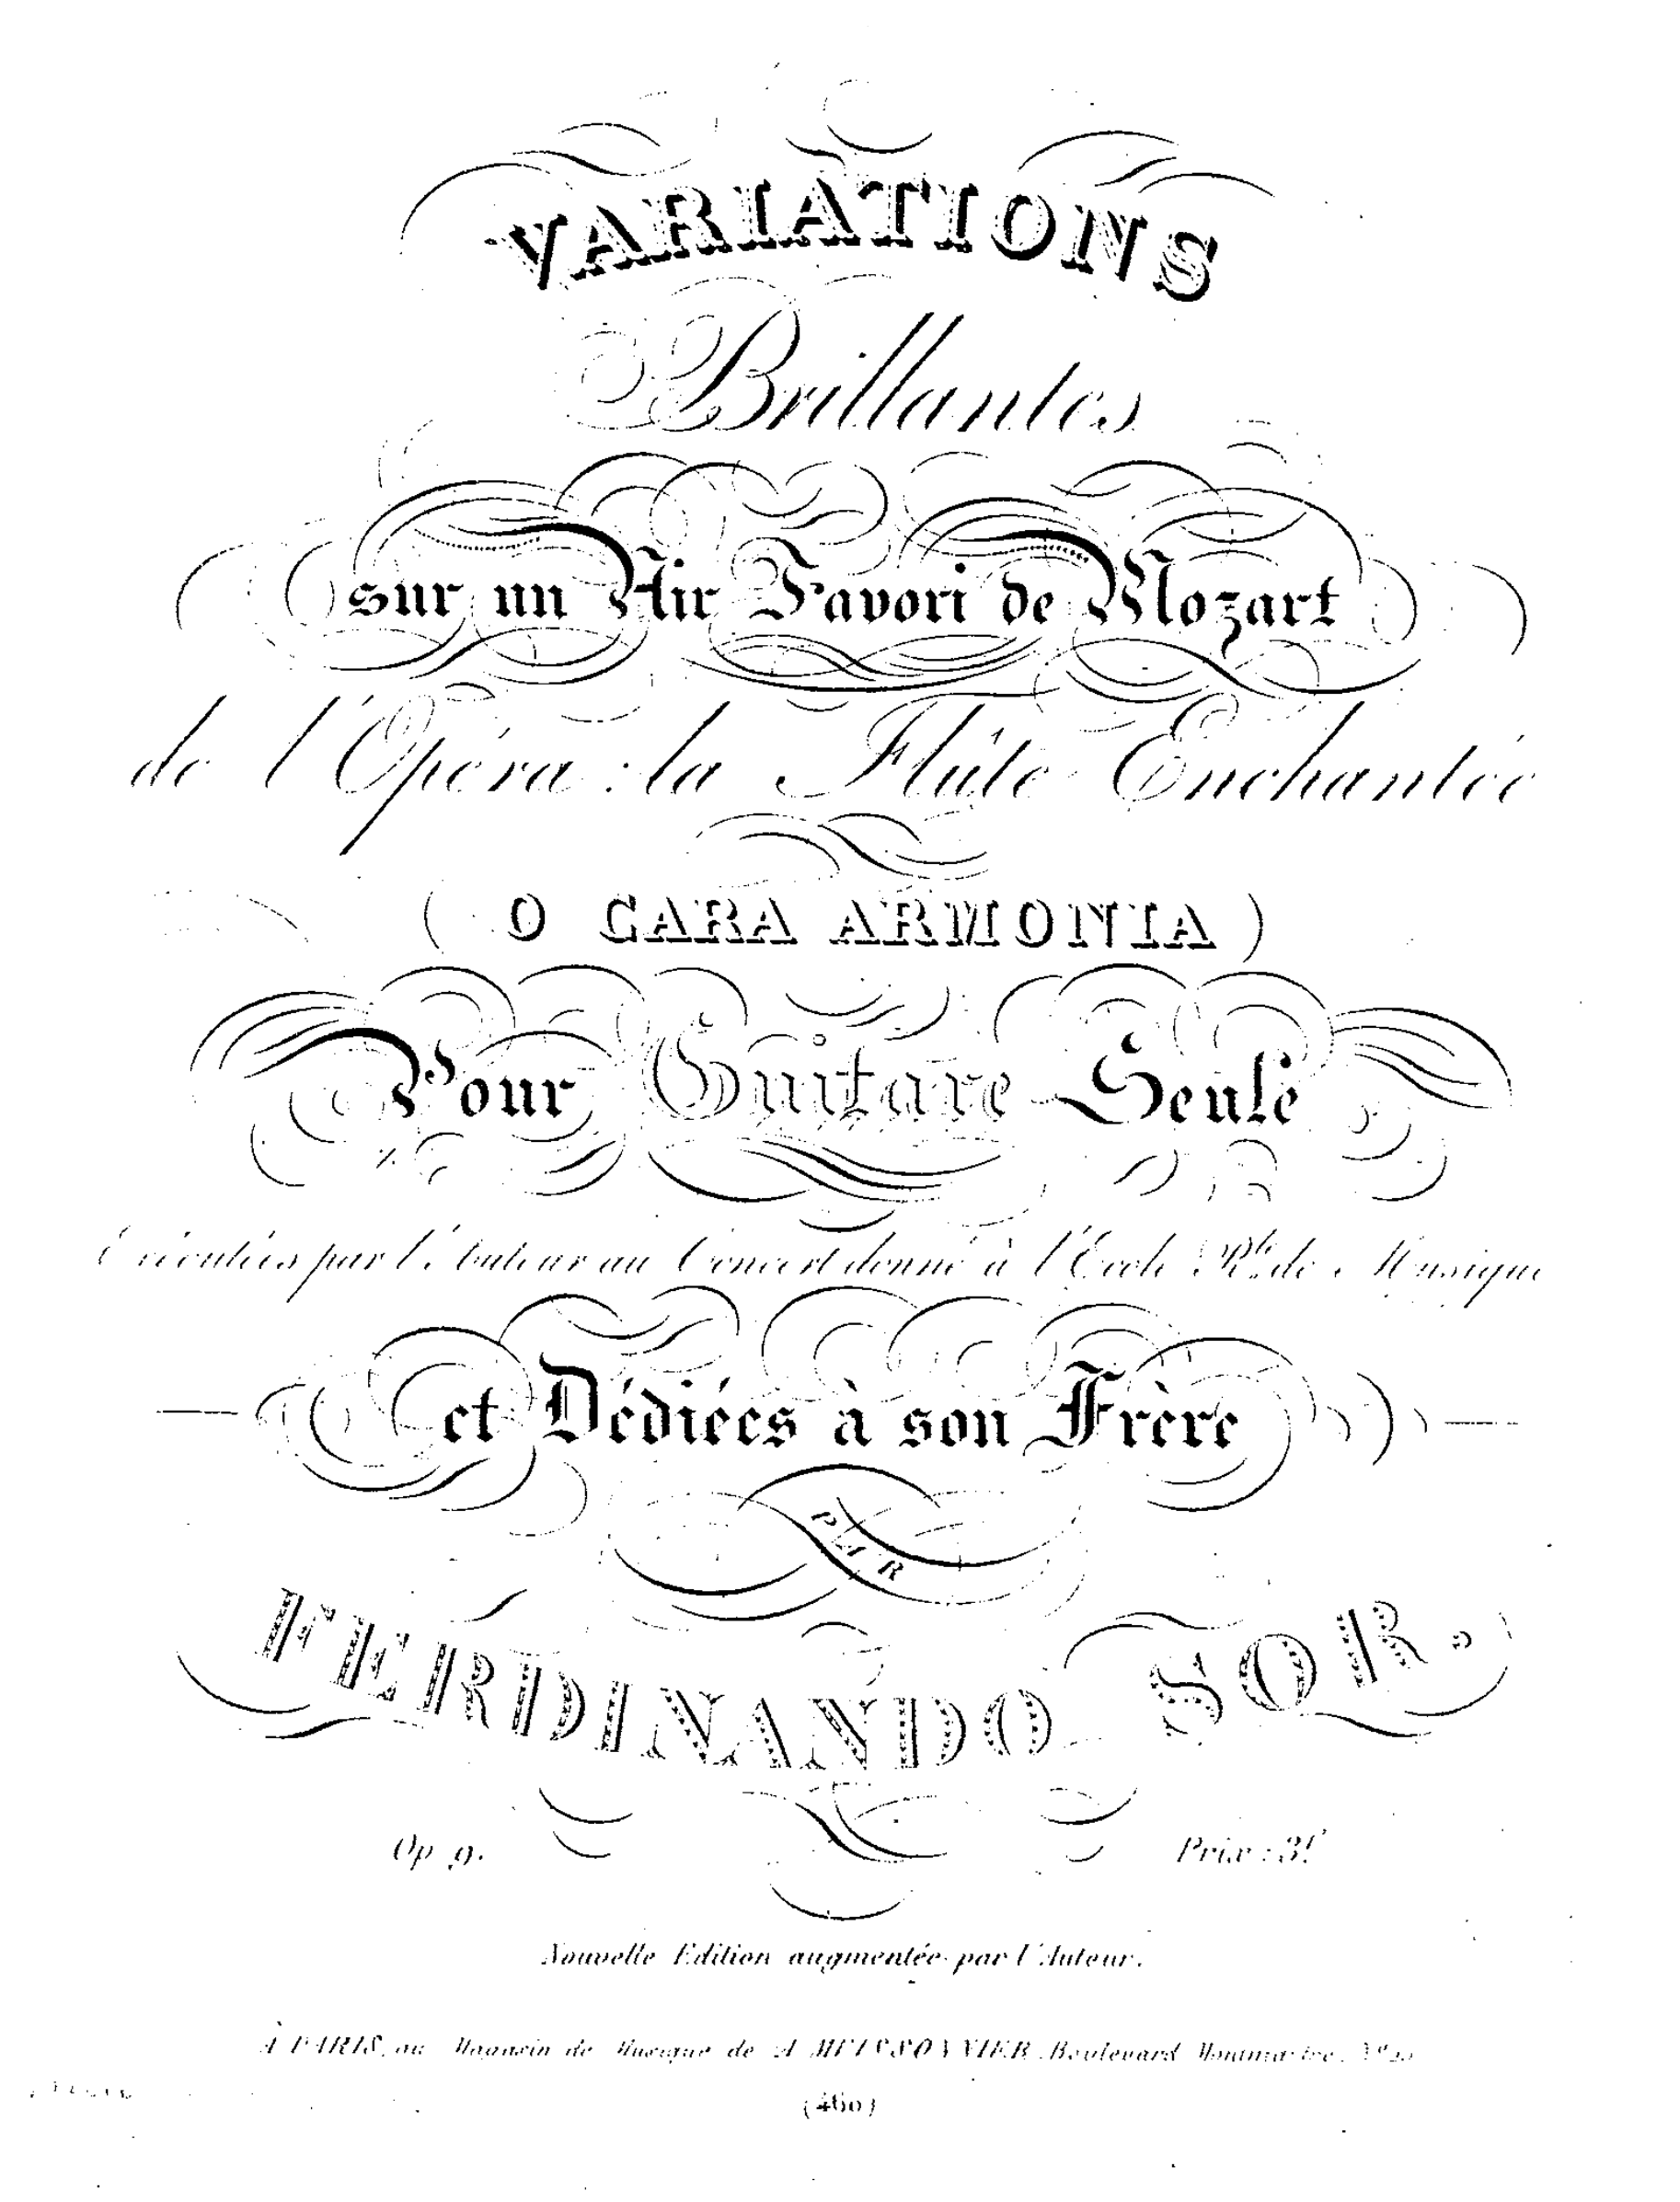 VARIATIONS
Brillantes
sur un Air Favori de Mozart
de l'Opéra : la Flûte Enchantée
( O CARA ARMONIA )
Pour Guitare Seule
Exécutées par l'Auteur au Concert donné à l'Ecole R.le de Musique
et Dédiées à son Frère
PAR
FERDINANDO SOR.
Op. 9. Prix : 3f
Nouvelle Edition augmentée par l'Auteur.
À PARIS, au Magasin de Musique de A MEISSONNIER, Boulevard Montmartre, N° 25
(460)